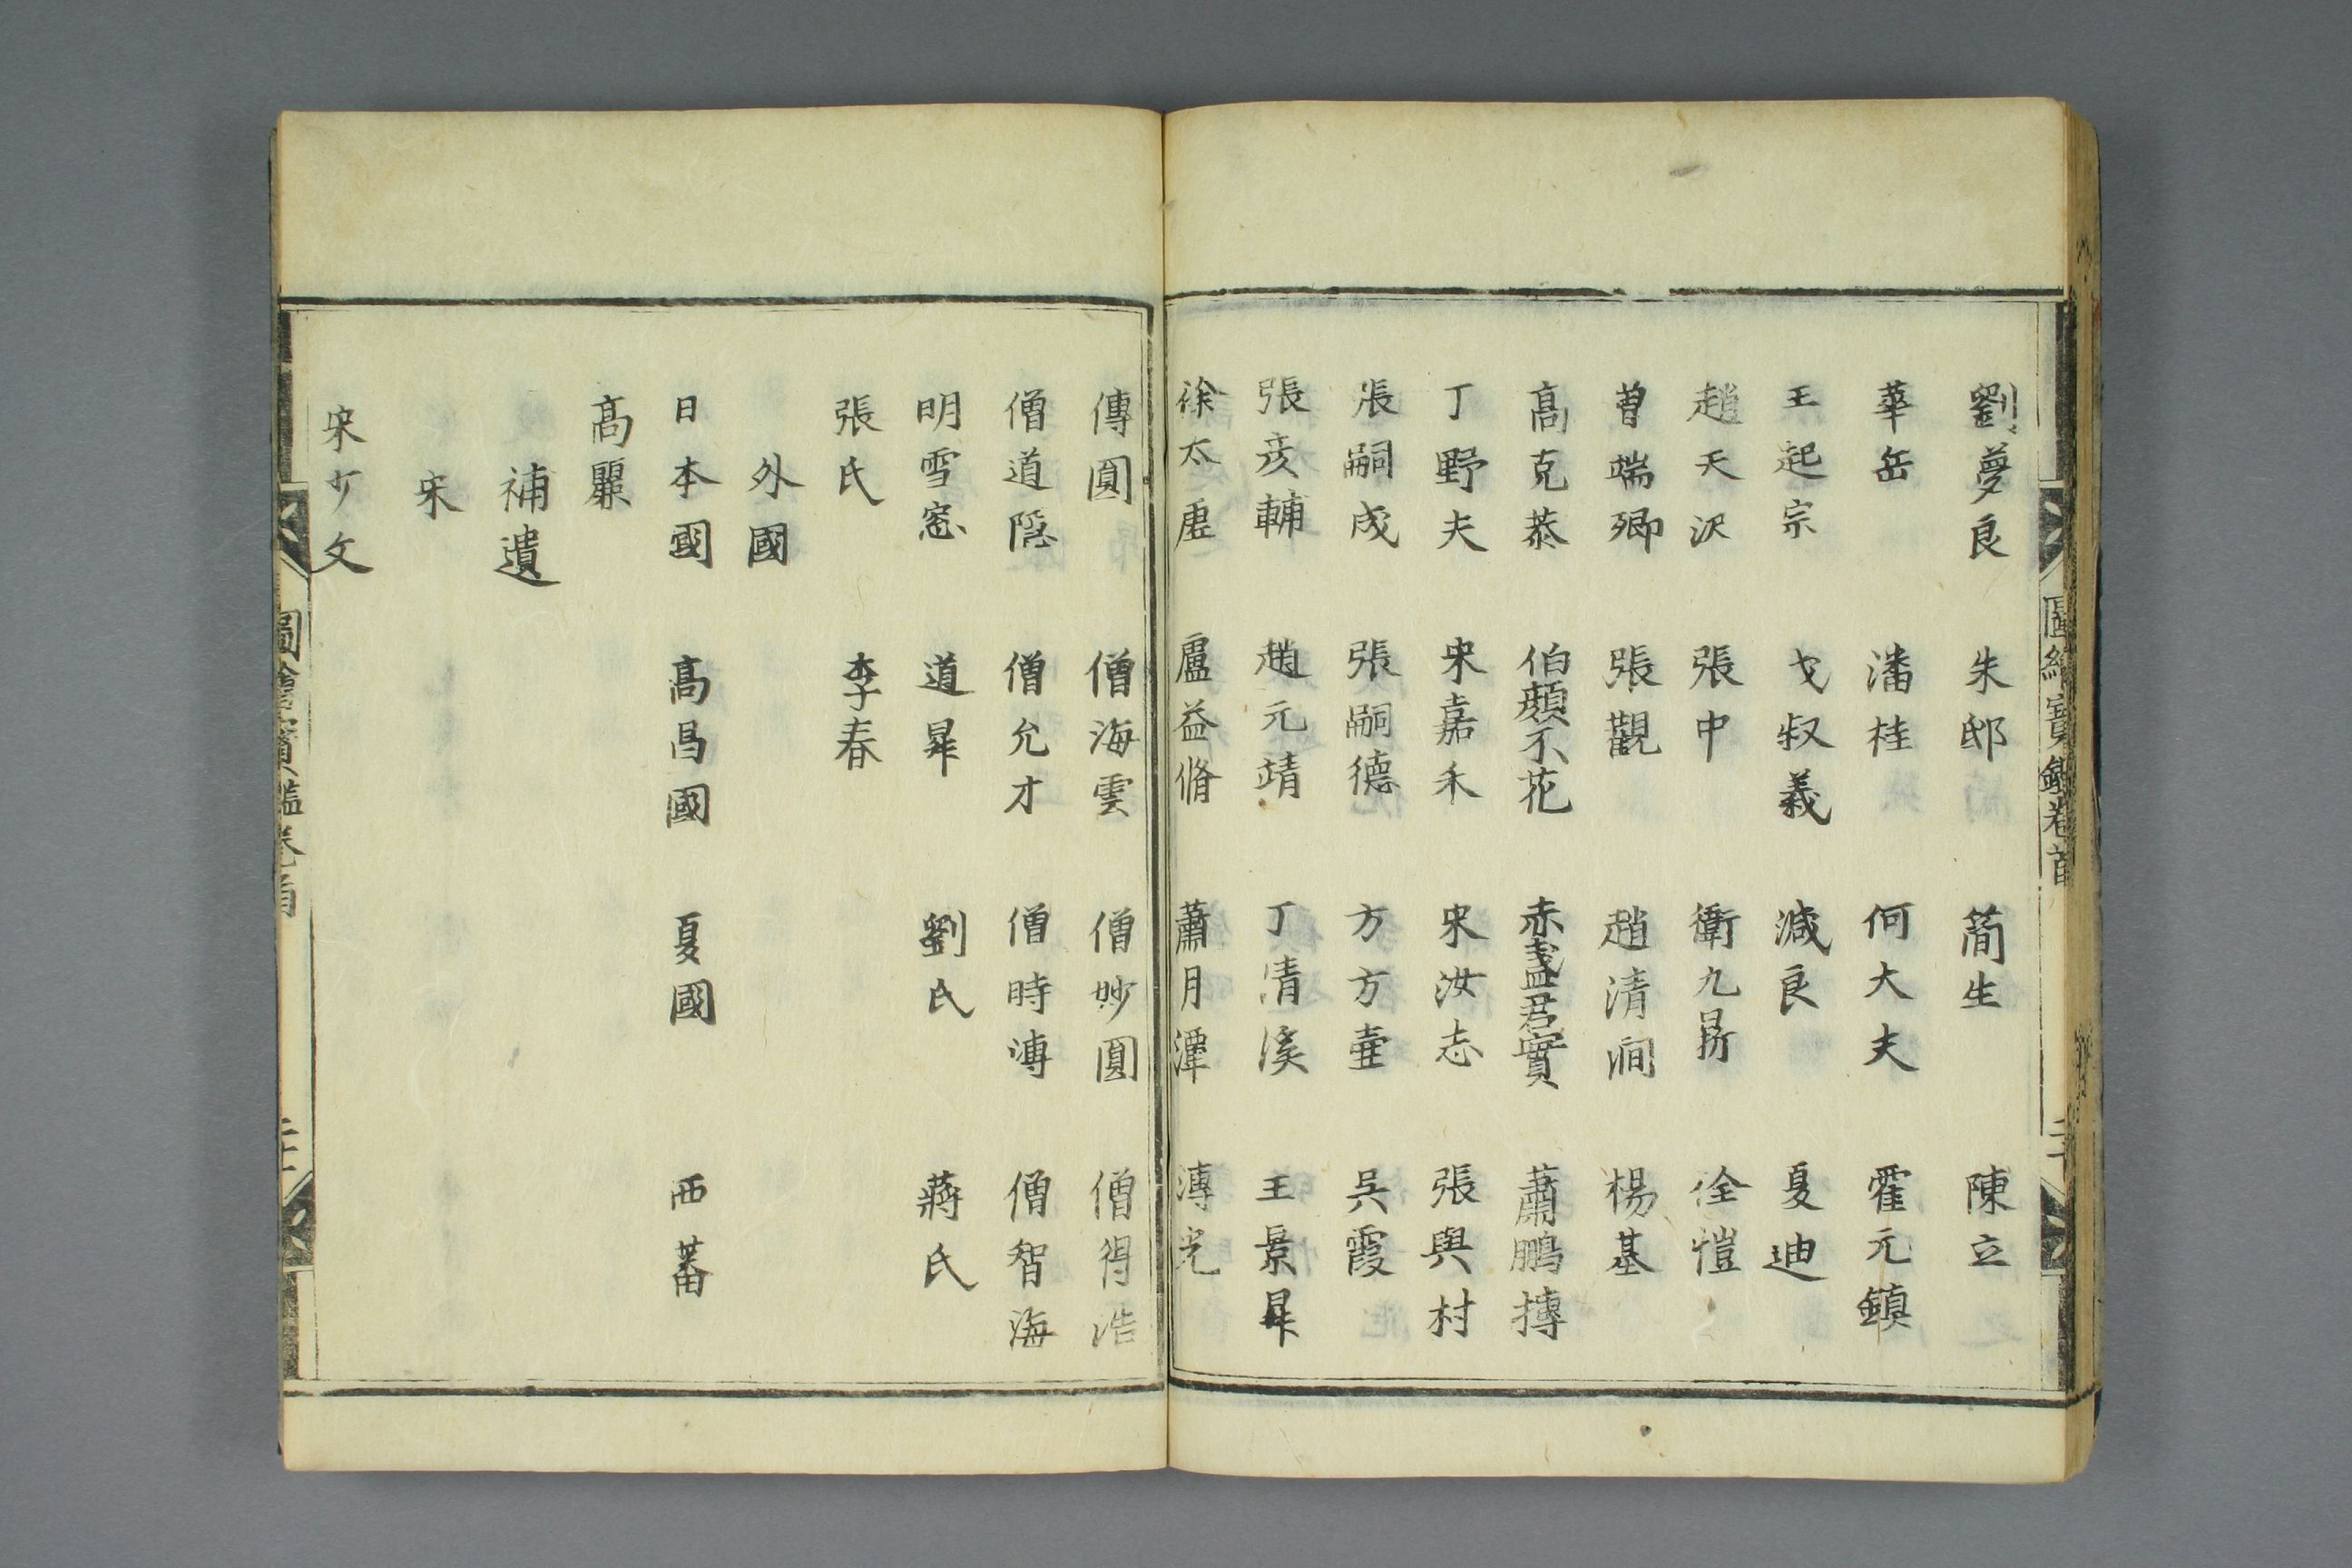 劉夢良 朱邸 蕳生 陳立
華岳 潘桂 何大夫 霍元鎮
王起宗 戈叔義 減良 夏迪
趙天澤 張中 衛九鼎 徐愷
曽端卿 張觀 趙清澗 楊基
髙克恭 伯顔不花 赤盞君實 蕭鵬摶
丁野夫 宋嘉禾 宋汝志 張與村
張嗣成 張嗣德 方方壷 吳霞
張彦輔 趙元靖 丁清溪 王景昇
徐太虛 盧益脩 蕭月潭 溥光
圖繪寳鑑卷首
傳圓 僧海雲 僧妙圓 僧得浩
僧道隠 僧允才 僧時溥 僧智海
明雪窓 道昇 劉氏 蔣氏
張氏 李春
外國
日本國 髙昌國 夏國 西蕃
髙麗
補遺
宋
宋少文
圖繪寳鑑卷首